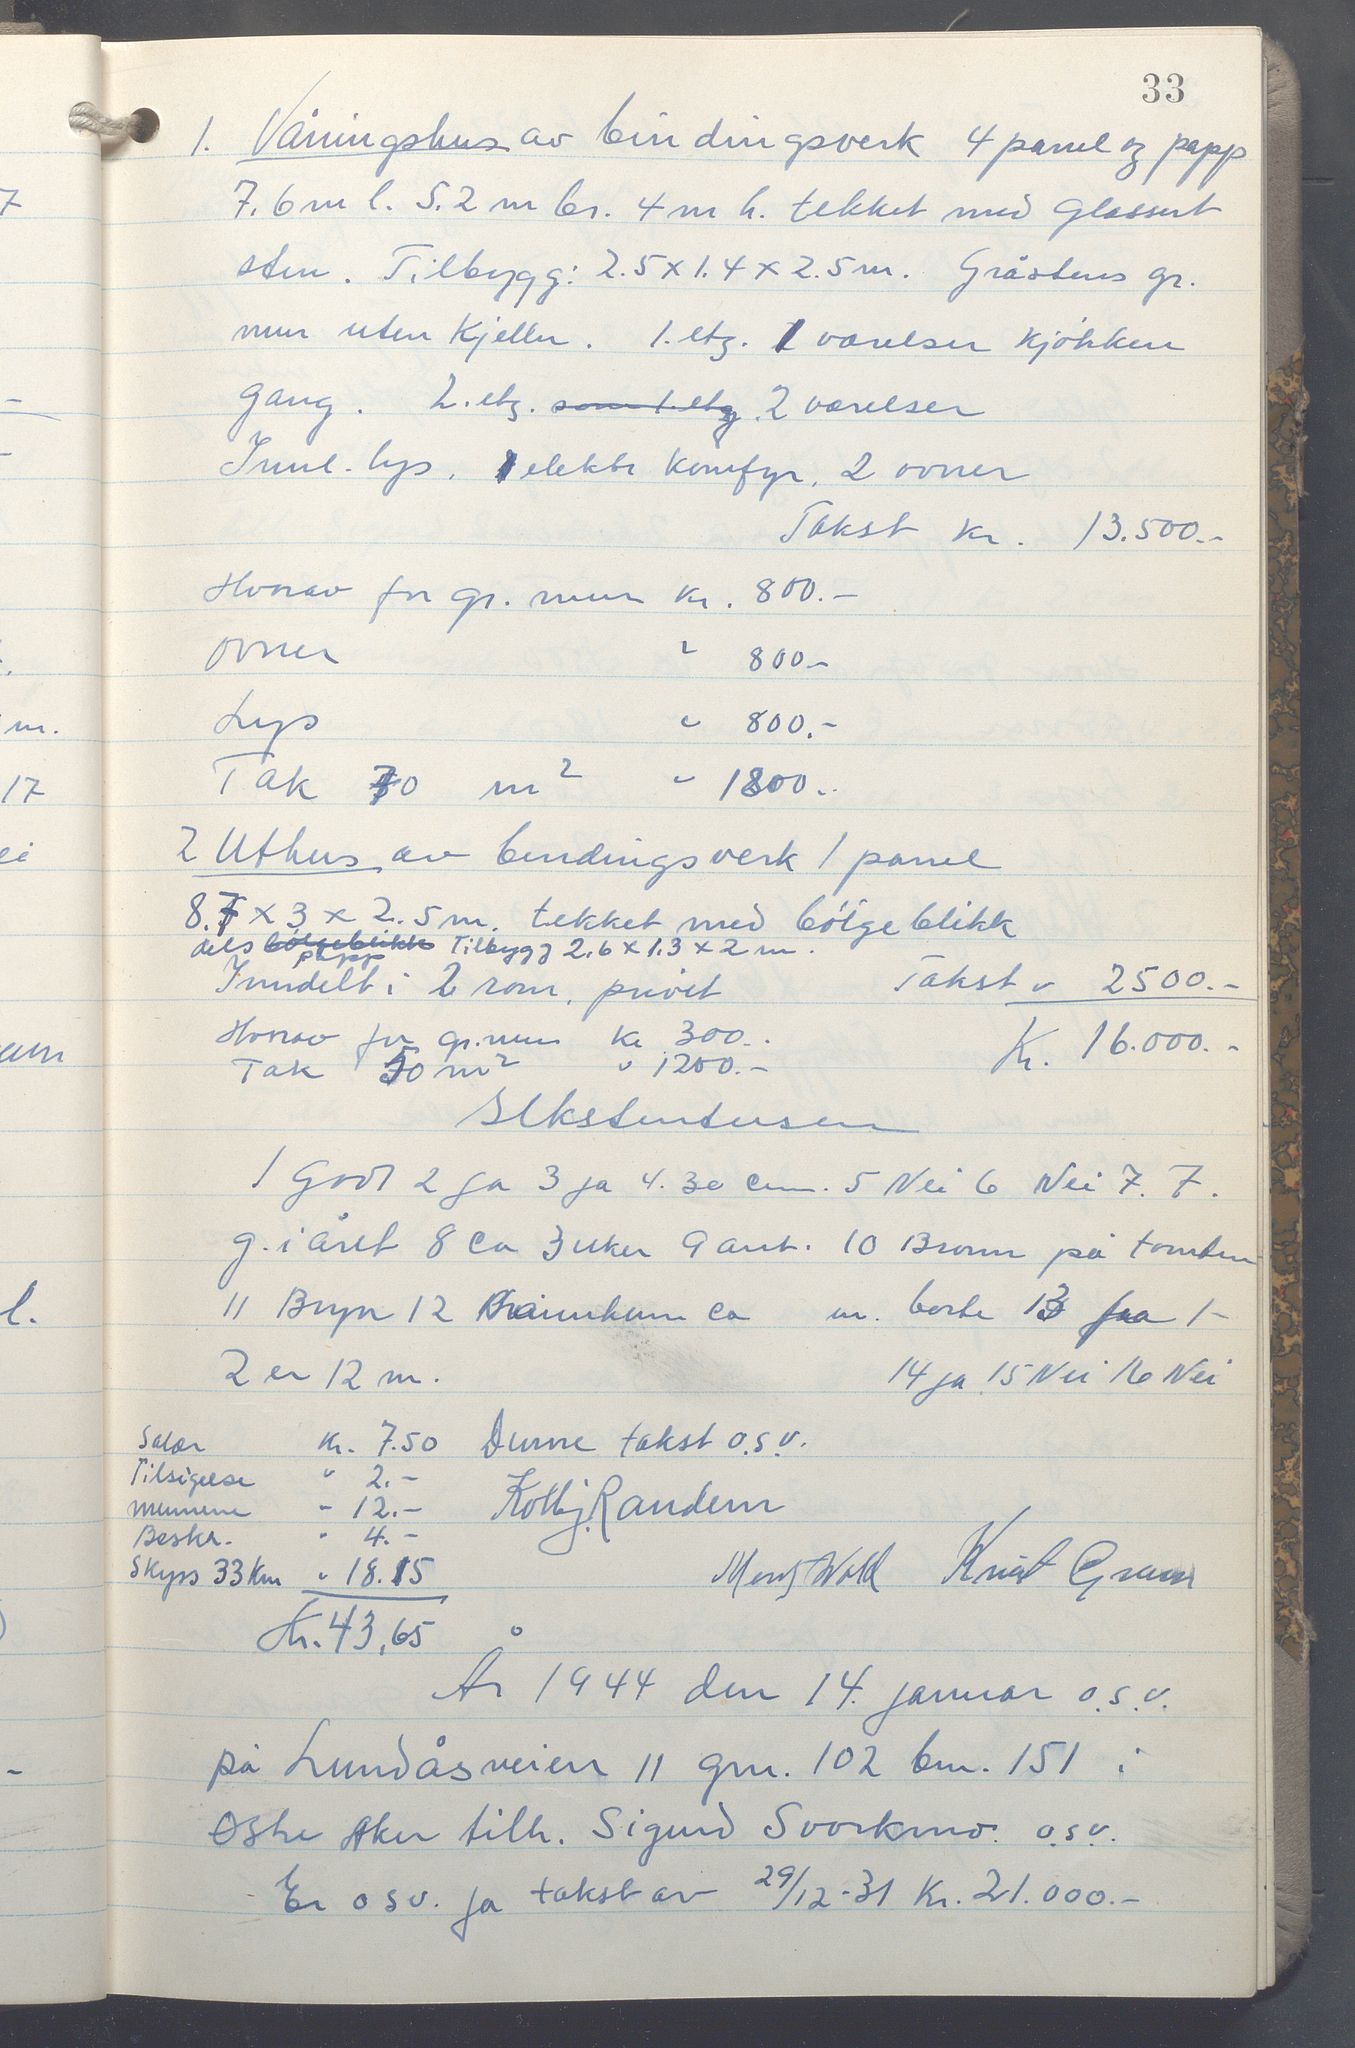 33
1. Våningshus av bindingsverk 4 panel og papp
7.6 m l. 5.2 m br. 4 m h. tekket med glassert
sten. Tilbygg: 2.5 x 1.4 x 2.5 m. Gråstens gr.
mur uten kjeller. 1. etg. 1 værelser kjökken
gang. 2. etg. som 1. etg. 2 værelser
Innl. lys. 1 elektr komfyr, 2 ovner
Takst kr. 13.500.-
Hvorav for gr. mur kr. 800.-
ovner " 800.-
Lys " 800.-
Tak 70 m² " 1800.-
2 Uthus av bindingsverk 1 panel
8.7 x 3 x 2.5 m. tekket med bölgeblikk
dels bölgeblikk papp Tilbygg 2.6 x 1.3 x 2 m.
Inndelt i 2 rom, privet Takst " 2500.-
Hvorav for gr. mur kr 300.-
Kr. 16.000.-
Tak 50 m² " 1200.-
1 God 2 ja 3 ja 4. 30 cm. 5 Nei 6 Nei 7. 7.
g. i året 8 ca 3 uker 9 ant. 10 Brönn på tomten
11 Bryn 12 ca m. borte 13 fra 1-
2 er 12 m. 14 ja 15 Nei 16 Nei
Salær kr. 7.50 Denne takst o.s.v.
Tilsigelse " 2.-
mennene " 12.- Kolbj. Randem
Beskr. " 4.-
Skyss 33 km " 18.15 Wold Knut Gram
Kr. 43,65
År 1944 den 14. januar o.s.v.
på Lundåsveien 11 gnr. 102 bnr. 151 i
Östre Aker tilh. Sigurd Svorkmo. o.s.v.
Er o s v. ja takst av 29/12-31 Kr. 21.000.-
7
-
-
m.
17
ei
l.
-